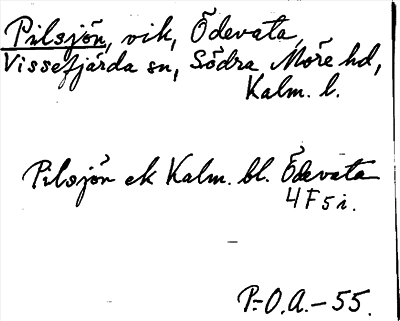 Pilsjön, vik, Ödevata
Vissefjärda sn, Södra Möre hd,
Kalm. l.
Pilsjön ek Kalm. bl. Ödevata
4F5i.
P.-O.A.-55.